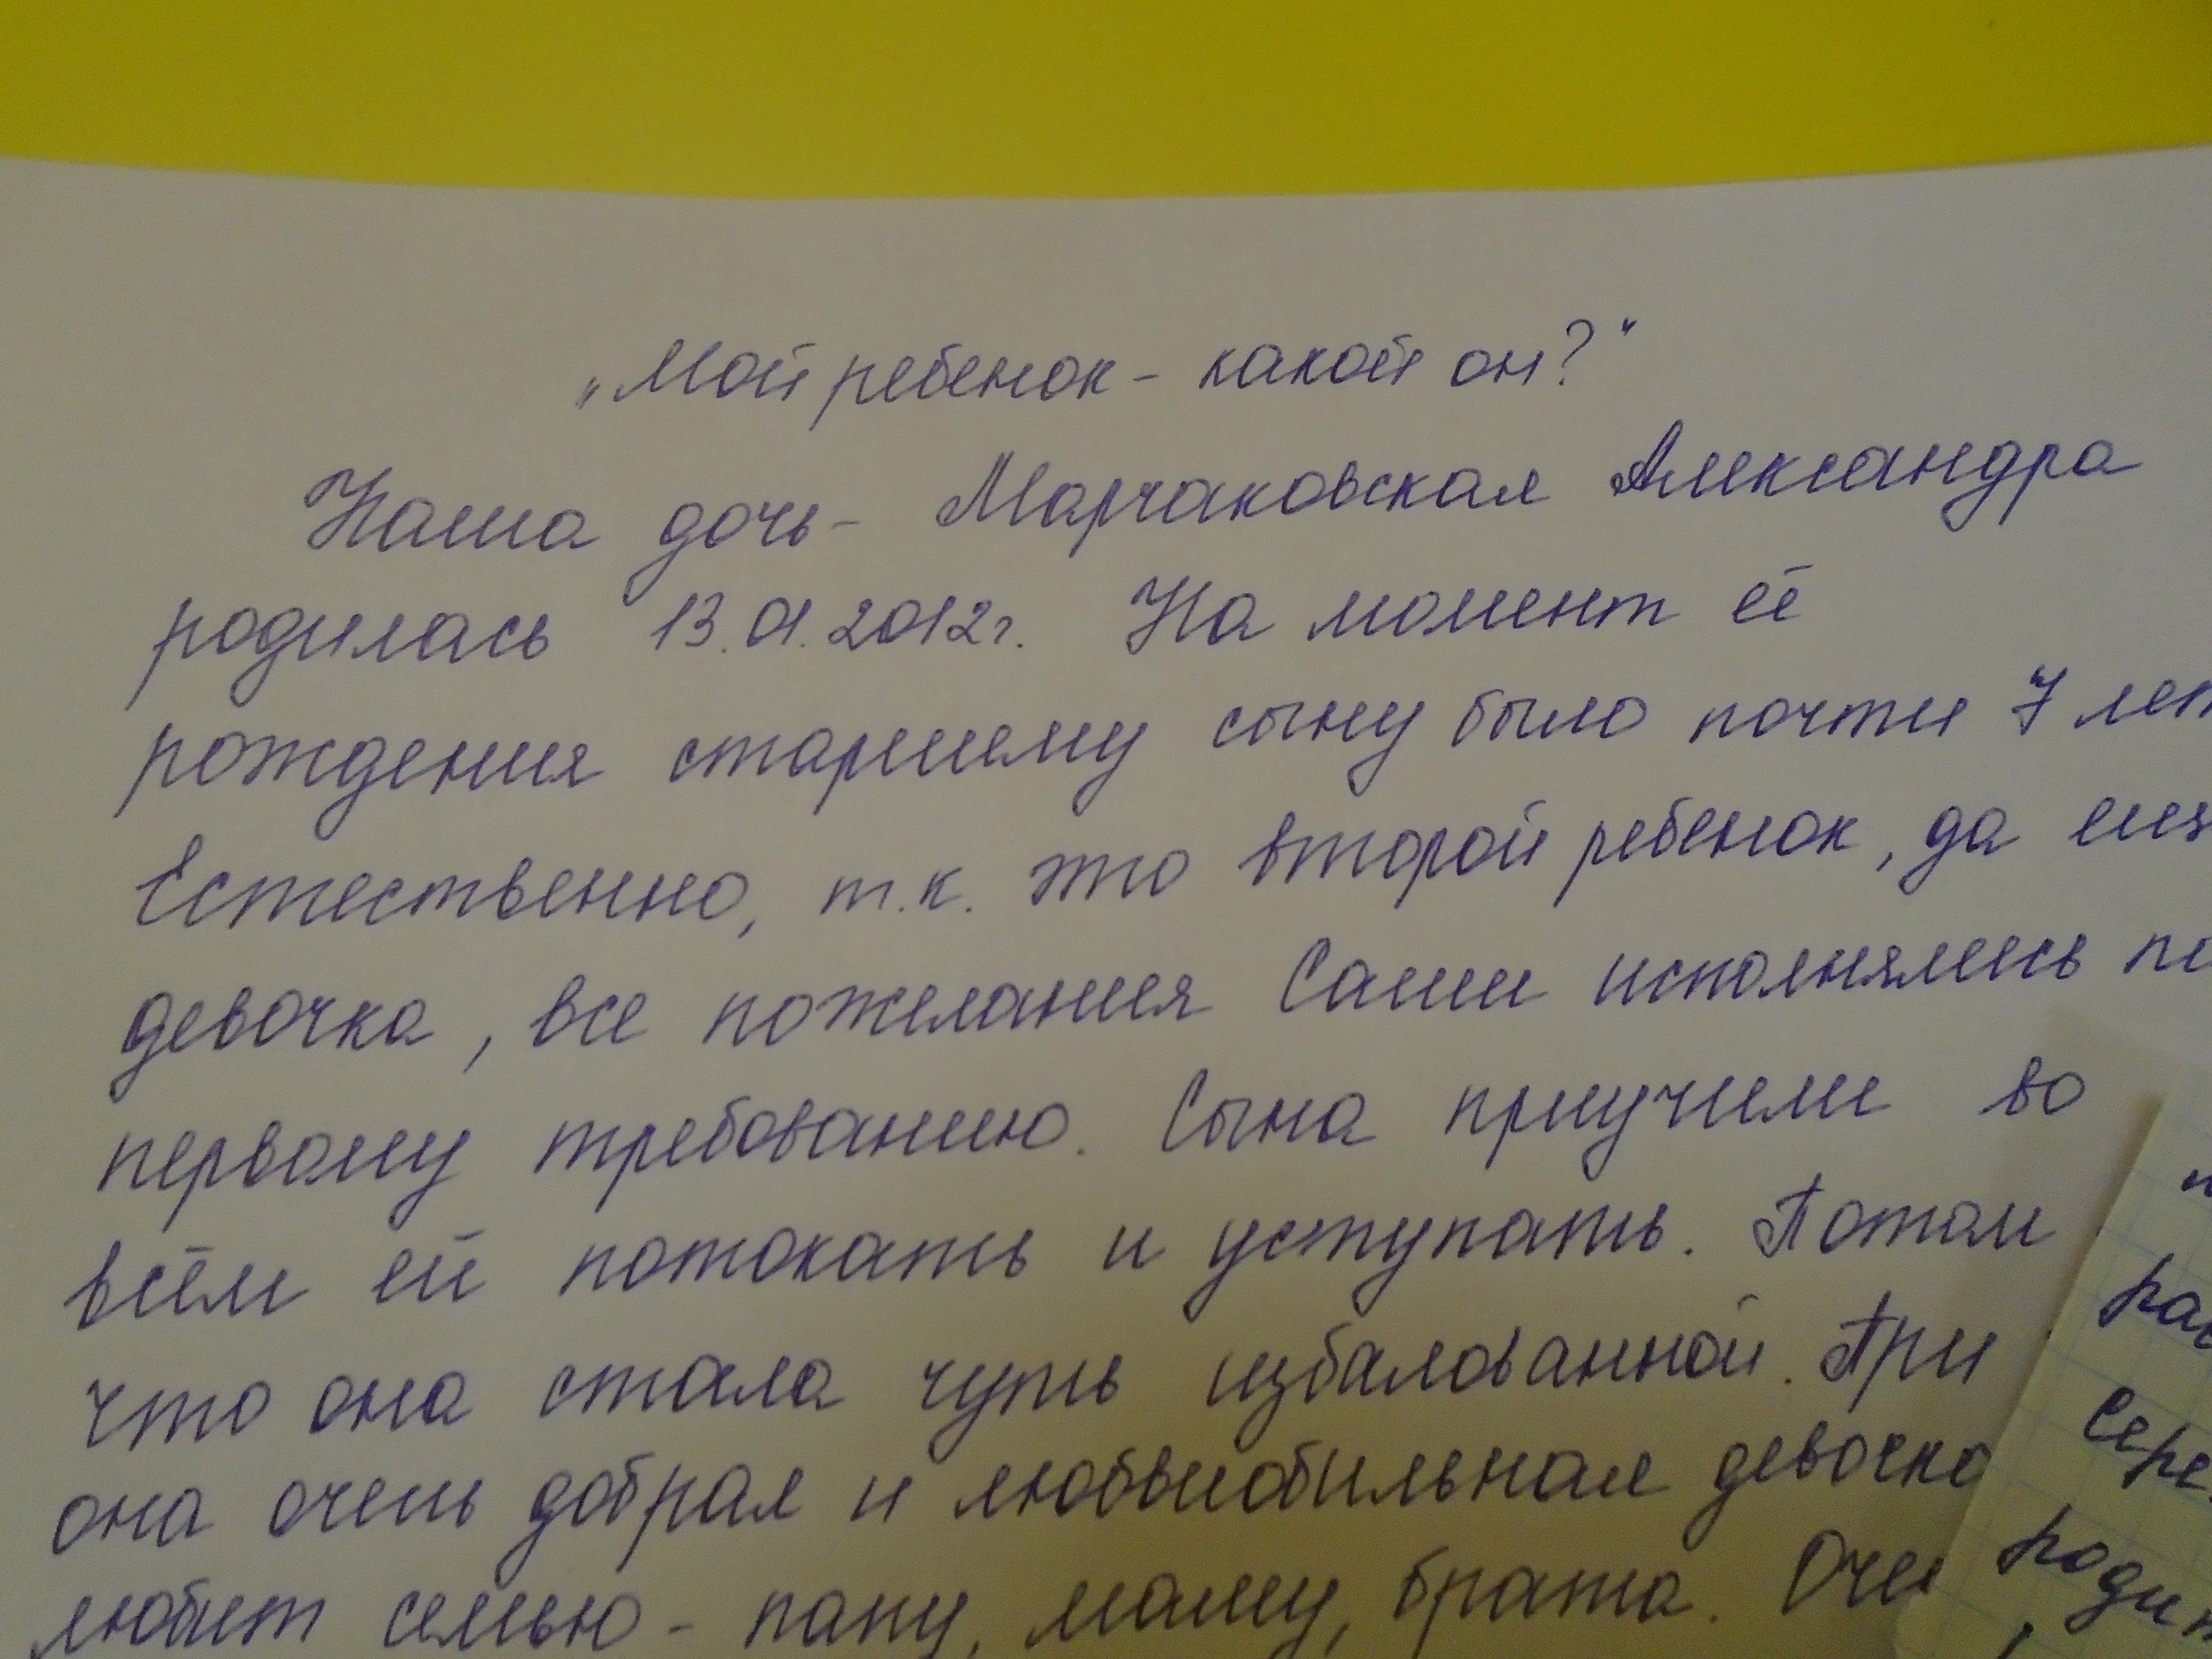 „Мой ребенок - какой он?"
Наша дочь - Марчаковская Александра
родилась 13.01.2012г. На момент её
рождения старшему сыну было почти 7 лет
Естественно, т.к. это второй ребенок, да
девочка, все пожелания Саши исполнялись
первому требованию. Сына приучили во
всём ей потокать и уступать. Потом
что она стала чуть избалованной. При
она очень добрая и любвиобильная девочка
любит семью - папу, маму, брата.